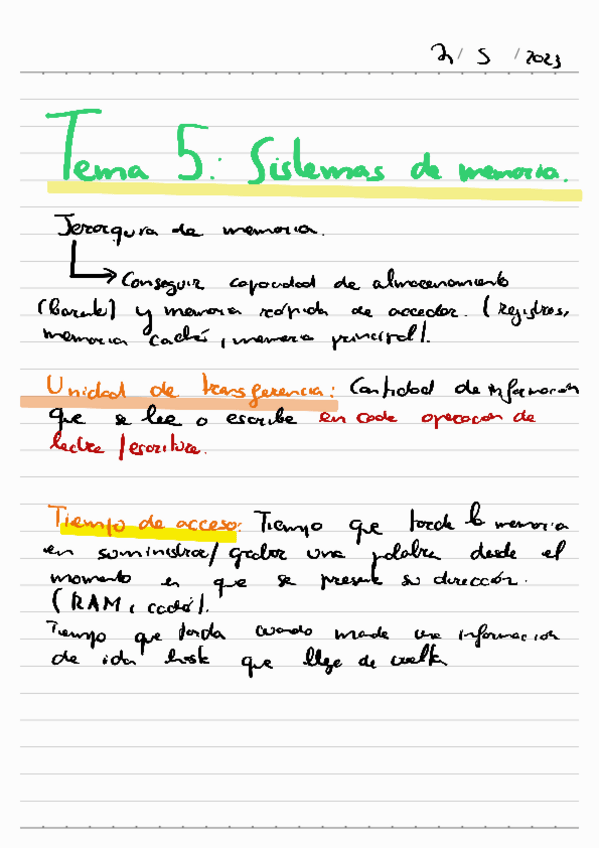 2/ 5 /2023
Tema 5: Sistemas de memoria.
Jerarquia de memoria.
Conseguir capacidad de almacenamiento
(barata) y memoria rápida de acceder. (registros,
memoria caché, memoria principal).
Unidad de transferencia: Cantidad de informacion
que se lee o escribe en cada operacion de
lectura /escritura.
Tiempo de acceso: Tiempo que tarda la memoria
en suministrar/ grabar una palabra desde el
momento en que se presenta su dirección.
(RAM, caché).
Tiempo que tarda cuando mando una informacion
de ida hasta que llega de vuelta